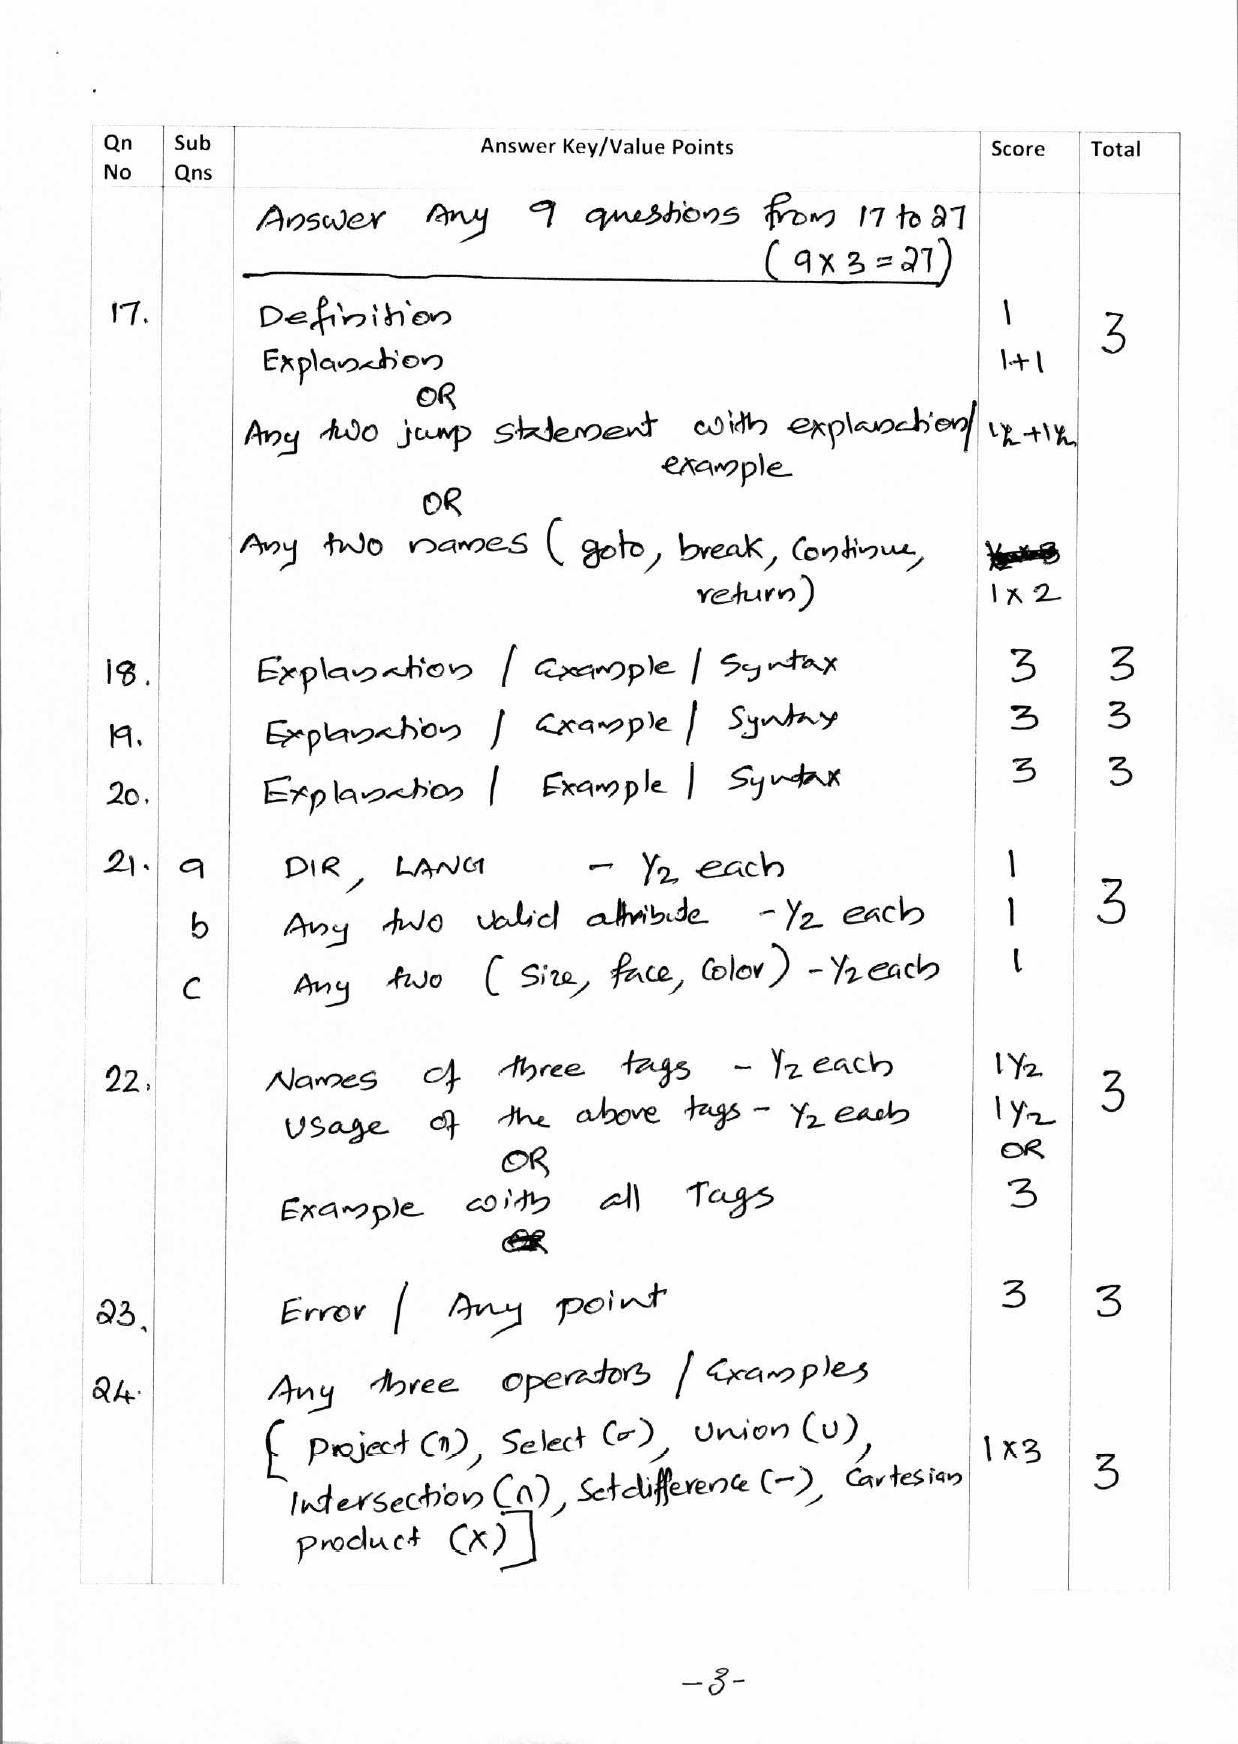 Qn No Sub Qns Answer Key/Value Points Score Total
Answer Any 9 questions from 17 to 27
(9x3=27)
17. Definition 1 3
Explanation 1+1
OR
Any two jump statement with explanation/ 1½+1½
example
OR
Any two names (goto, break, Continue,
return) 1x2
18. Explanation / Example / Syntax 3 3
19. Explanation / Example / Syntax 3 3
20. Explanation / Example / Syntax 3 3
21. a DIR, LANG - ½ each 1 3
b Any two valid attribute - ½ each 1
c Any two (Size, face, Color) - ½ each 1
22. Names of three tags - ½ each 1½ 3
Usage of the above tags - ½ each 1½
OR OR
Example with all Tags 3
23. Error / Any point 3 3
24. Any three operators / Examples
[Project (π), Select (σ), Union (∪), 1x3 3
Intersection (∩), Setdifference (-), Cartesian
product (x)]
-3-